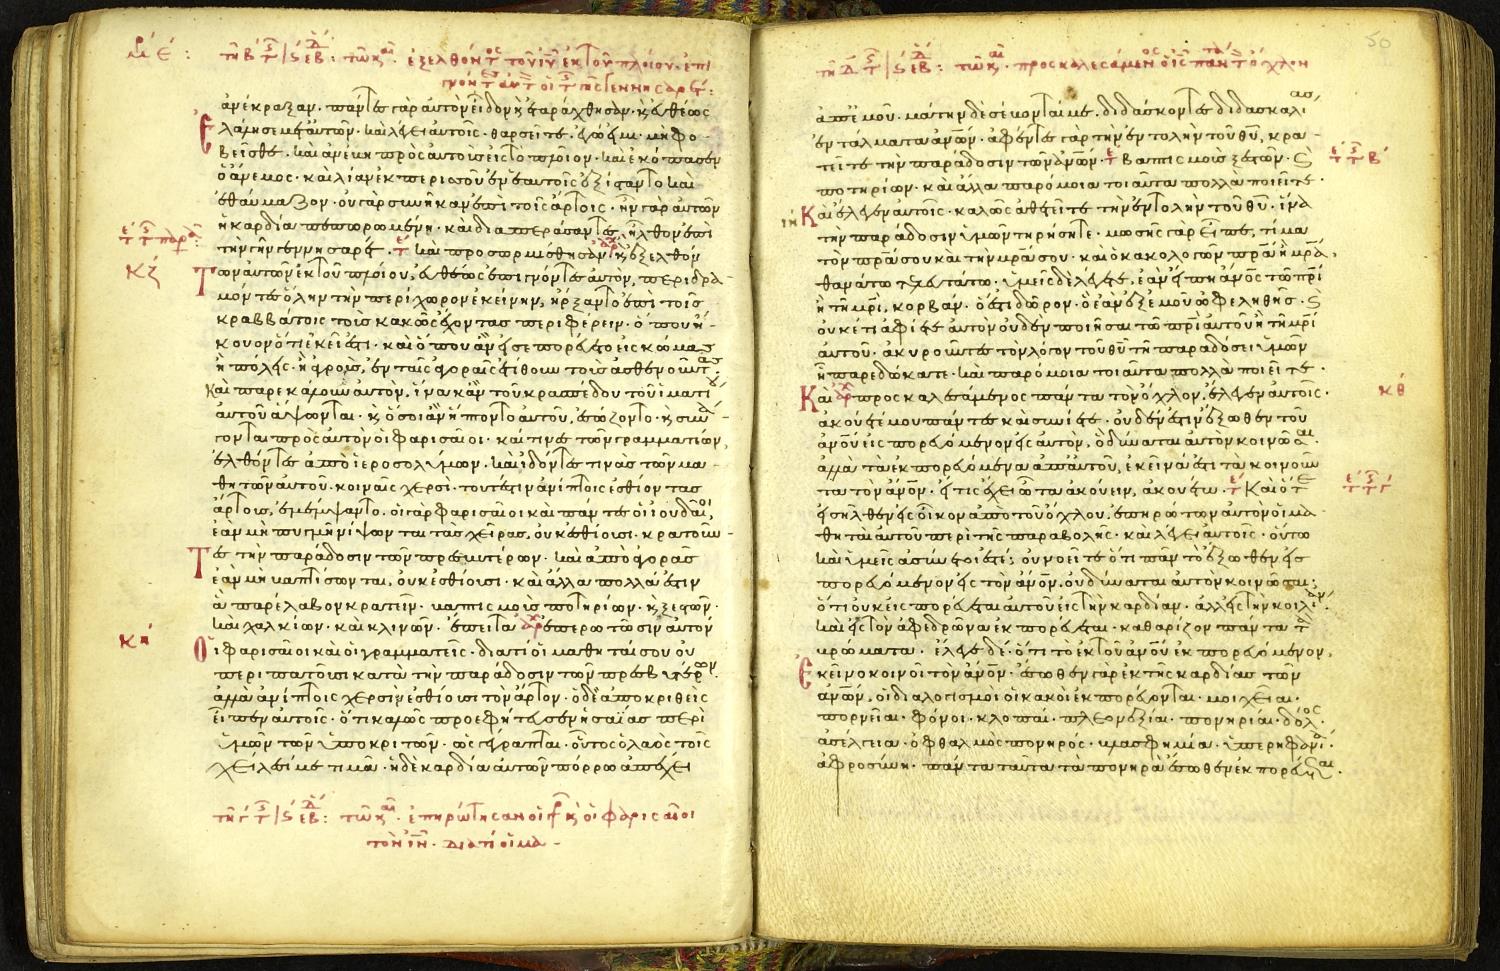 ἀνέκραξαν· πάντες γὰρ αὐτὸν εἶδον κ ἐταράχθησαν· κ εὐθέως
ἐλάλησε μετ αὐτῶν· καὶ λέγει αὐτοῖς· θαρσεῖτε· ἐγώ εἰμι· μὴ φο-
βεῖσθε· καὶ ἀνέβη πρὸς αὐτοὺς εἰς τὸ πλοῖον· καὶ ἐκόπασεν
ὁ ἄνεμος· καὶ λίαν ἐκ περισσοῦ ἐν ἑαυτοῖς ἐξίσταντο καὶ
ἐθαύμαζον· οὐ γὰρ συνῆκαν ἐπὶ τοῖς ἄρτοις· ἦν γὰρ αὐτῶν
ἡ καρδία πεπωρωμένη· καὶ διαπεράσαντες ἦλθον ἐπὶ
τὴν γῆν γεννησαρέτ· καὶ προσωρμίσθησαν· κ ἐξελθόν
κζ
Των αὐτῶν ἐκ τοῦ πλοίου, εὐθέως ἐπιγνόντες αὐτὸν, περιδρα-
μόντες ὅλην τὴν περίχωρον ἐκείνην, ἤρξαντο ἐπὶ τοῖς
κραββάτοις τοὺς κακῶς ἔχοντας περιφέρειν· ὅπου ἤ-
κουον ὅτι ἐκεῖ ἐστι· καὶ ὅπου ἂν εἰσεπορεύετο εἰς κώμας
ἢ πόλεις· ἢ ἀγροὺς, ἐν ταῖς ἀγοραῖς ἐτίθουν τοὺς ἀσθενοῦντας·
καὶ παρεκάλουν αὐτὸν, ἵνα κἂν τοῦ κρασπέδου τοῦ ἱματίου
αὐτοῦ ἅψωνται· κ ὅσοι ἂν ἥπτοντο αὐτοῦ, ἐσώζοντο· κ συνά-
γονται πρὸς αὐτὸν οἱ φαρισαῖοι· καί τινες τῶν γραμματέων
ἐλθόντες ἀπὸ ἱεροσολύμων· καὶ ἰδόντες τινὰς τῶν μα-
θητῶν αὐτοῦ κοιναῖς χερσὶ· τουτέστιν ἀνίπτοις ἐσθίοντας
ἄρτους, ἐμέμψαντο· οἱ γὰρ φαρισαῖοι καὶ πάντες οἱ ἰουδαῖοι
ἐὰν μὴ πυγμῆ νίψωνται τὰς χεῖρας, οὐκ ἐσθίουσι· κρατοῦν-
Τες τὴν παράδοσιν τῶν πρεσβυτέρων· καὶ ἀπὸ ἀγορᾶς
ἐὰν μὴ βαπτίσωνται, οὐκ ἐσθίουσι· καὶ ἄλλα πολλά ἐστιν
ἃ παρέλαβον κρατεῖν· βαπτισμοὺς ποτηρίων· κ ξεστῶν·
καὶ χαλκίων· καὶ κλινῶν· ἔπειτα ἐπερωτῶσιν αὐτὸν
κη
Οἱ φαρισαῖοι καὶ οἱ γραμματεῖς· διατί οἱ μαθηταί σου οὐ
περιπατοῦσι κατὰ τὴν παράδοσιν τῶν πρεσβυτέρων·
ἀλλὰ ἀνίπτοις χερσὶν ἐσθίουσι τὸν ἄρτον· ὁ δὲ ἀποκριθεὶς
εἶπεν αὐτοῖς· ὅτι καλῶς προεφήτευσεν ἡσαΐας περὶ
ὑμῶν τῶν ὑποκριτῶν· ὡς γέγραπται· οὗτος ὁ λαὸς τοῖς
χείλεσί με τιμᾶ· ἡ δὲ καρδία αὐτῶν πόρρω ἀπέχει
ἐπηρώτησαν οἱ κ οἱ φαρισαῖοι
τὸν ιν· διατί οἱ μα-
50
προσκαλεσάμενος ὁ ις πάντα τὸν ὄχλον
ἀπ ἐμοῦ· μάτην δὲ σέβονταί με· διδάσκοντες διδασκαλίας
ἐντάλματα ανων· ἀφέντες γὰρ τὴν ἐντολὴν τοῦ θυ, κρα-
τεῖτε τὴν παράδοσιν τῶν ανων· βαπτισμοὺς ξεστῶν· κ
ποτηρίων· καὶ ἄλλα παρόμοια τοιαῦτα πολλὰ ποιεῖτε·
Καὶ ἔλεγεν αὐτοῖς· καλῶς ἀθετεῖτε τὴν ἐντολὴν τοῦ θυ· ἵνα
τὴν παράδοσιν ὑμῶν τηρήσητε· μωσῆς γὰρ εἶπε, τίμα
τὸν πρα σου καὶ τὴν μρα σου· καὶ ὁ κακολογῶν πρα ἢ μρα,
θανάτω τελευτάτω· ὑμεῖς δὲ λέγετε, ἐὰν εἴπη ανος τῶ πρι
ἢ τῆ μρι, κορβᾶν· ὅ ἐστι δῶρον· ὃ ἐὰν ἐξ ἐμοῦ ὠφεληθῆς· κ
οὐκέτι ἀφίετε αὐτὸν οὐδὲν ποιῆσαι τῶ πρι αὐτοῦ ἢ τῆ μρι
αὐτοῦ· ἀκυροῦντες τὸν λόγον τοῦ θυ τῆ παραδόσει ὑμῶν
ἧ παρεδώκατε· καὶ παρόμοια τοιαῦτα πολλὰ ποιεῖτε·
κθ
Καὶ προσκαλεσάμενος πάντα τὸν ὄχλον, ἔλεγεν αὐτοῖς·
ἀκούετέ μου πάντες καὶ συνίετε· οὐδέν ἐστιν ἔξωθεν τοῦ
ανου εἰσπορευόμενον εἰς αὐτὸν, ὃ δύναται αὐτὸν κοινῶσαι·
ἀλλὰ τὰ ἐκπορευόμενα ἀπ αὐτοῦ, ἐκεῖνά ἐστι τὰ κοινοῦν
τα τὸν ανον· εἴ τις ἔχει ὦτα ἀκούειν, ἀκουέτω· Καὶ ὅτε
εἰσῆλθεν εἰς οἶκον ἀπὸ τοῦ ὄχλου, ἐπηρώτων αὐτὸν οἱ μα-
θηταὶ αὐτοῦ περὶ τῆς παραβολῆς· καὶ λέγει αὐτοῖς· οὕτω
καὶ ὑμεῖς ἀσύνετοί ἐστε; οὐ νοεῖτε ὅτι πᾶν τὸ ἔξωθεν εἰσ
πορευόμενον εἰς τὸν ανον, οὐ δύναται αὐτὸν κοινῶσαι;
ὅτι οὐκ εἰσπορεύεται αὐτοῦ εἰς τὴν καρδίαν· ἀλλ εἰς τὴν κοιλίαν·
καὶ εἰς τὸν ἀφεδρῶνα ἐκπορεύεται· καθαρίζον πάντα τὰ
βρώματα· ἔλεγε δέ· ὅτι τὸ ἐκ τοῦ ανου ἐκπορευόμενον,
Ἐκεῖνο κοινοῖ τὸν ανον· ἔσωθεν γὰρ ἐκ τῆς καρδίας τῶν
ανων, οἱ διαλογισμοὶ οἱ κακοὶ ἐκπορεύονται· μοιχεῖαι·
πορνεῖαι· φόνοι· κλοπαί· πλεονεξίαι· πονηρίαι· δόλος·
ἀσέλγεια· ὀφθαλμὸς πονηρός· βλασφημία· ὑπερηφανία·
ἀφροσύνη· πάντα ταῦτα τὰ πονηρὰ ἔσωθεν ἐκπορεύεται·